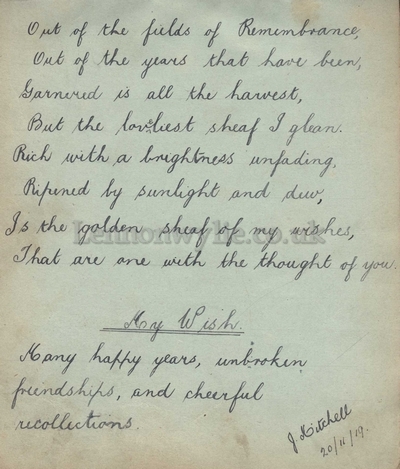 Out of the fields of Remembrance,
Out of the years that have been,
Garnered is all the harvest,
But the loveliest sheaf I glean.
Rich with a brightness unfading,
Ripened by sunlight and dew,
Is the golden sheaf of my wishes,
Lennonwylie.co.uk
That are one with the thought of you.
My Wish.
Many happy years, unbroken
friendships, and cheerful
recollections.
J. Mitchell
20/11/19.